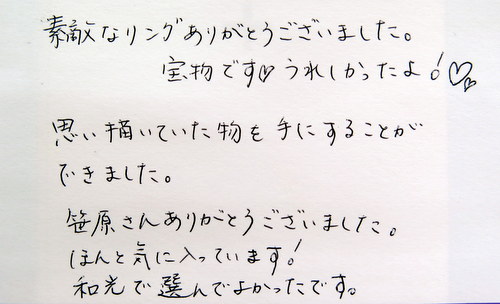 素敵なリングありがとうございました。
宝物です♡うれしかったよ!♡♡
思い描いていた物を手にすることが
できました。
笹原さんありがとうございました。
ほんと気に入っています!
和光で選んでよかったです。